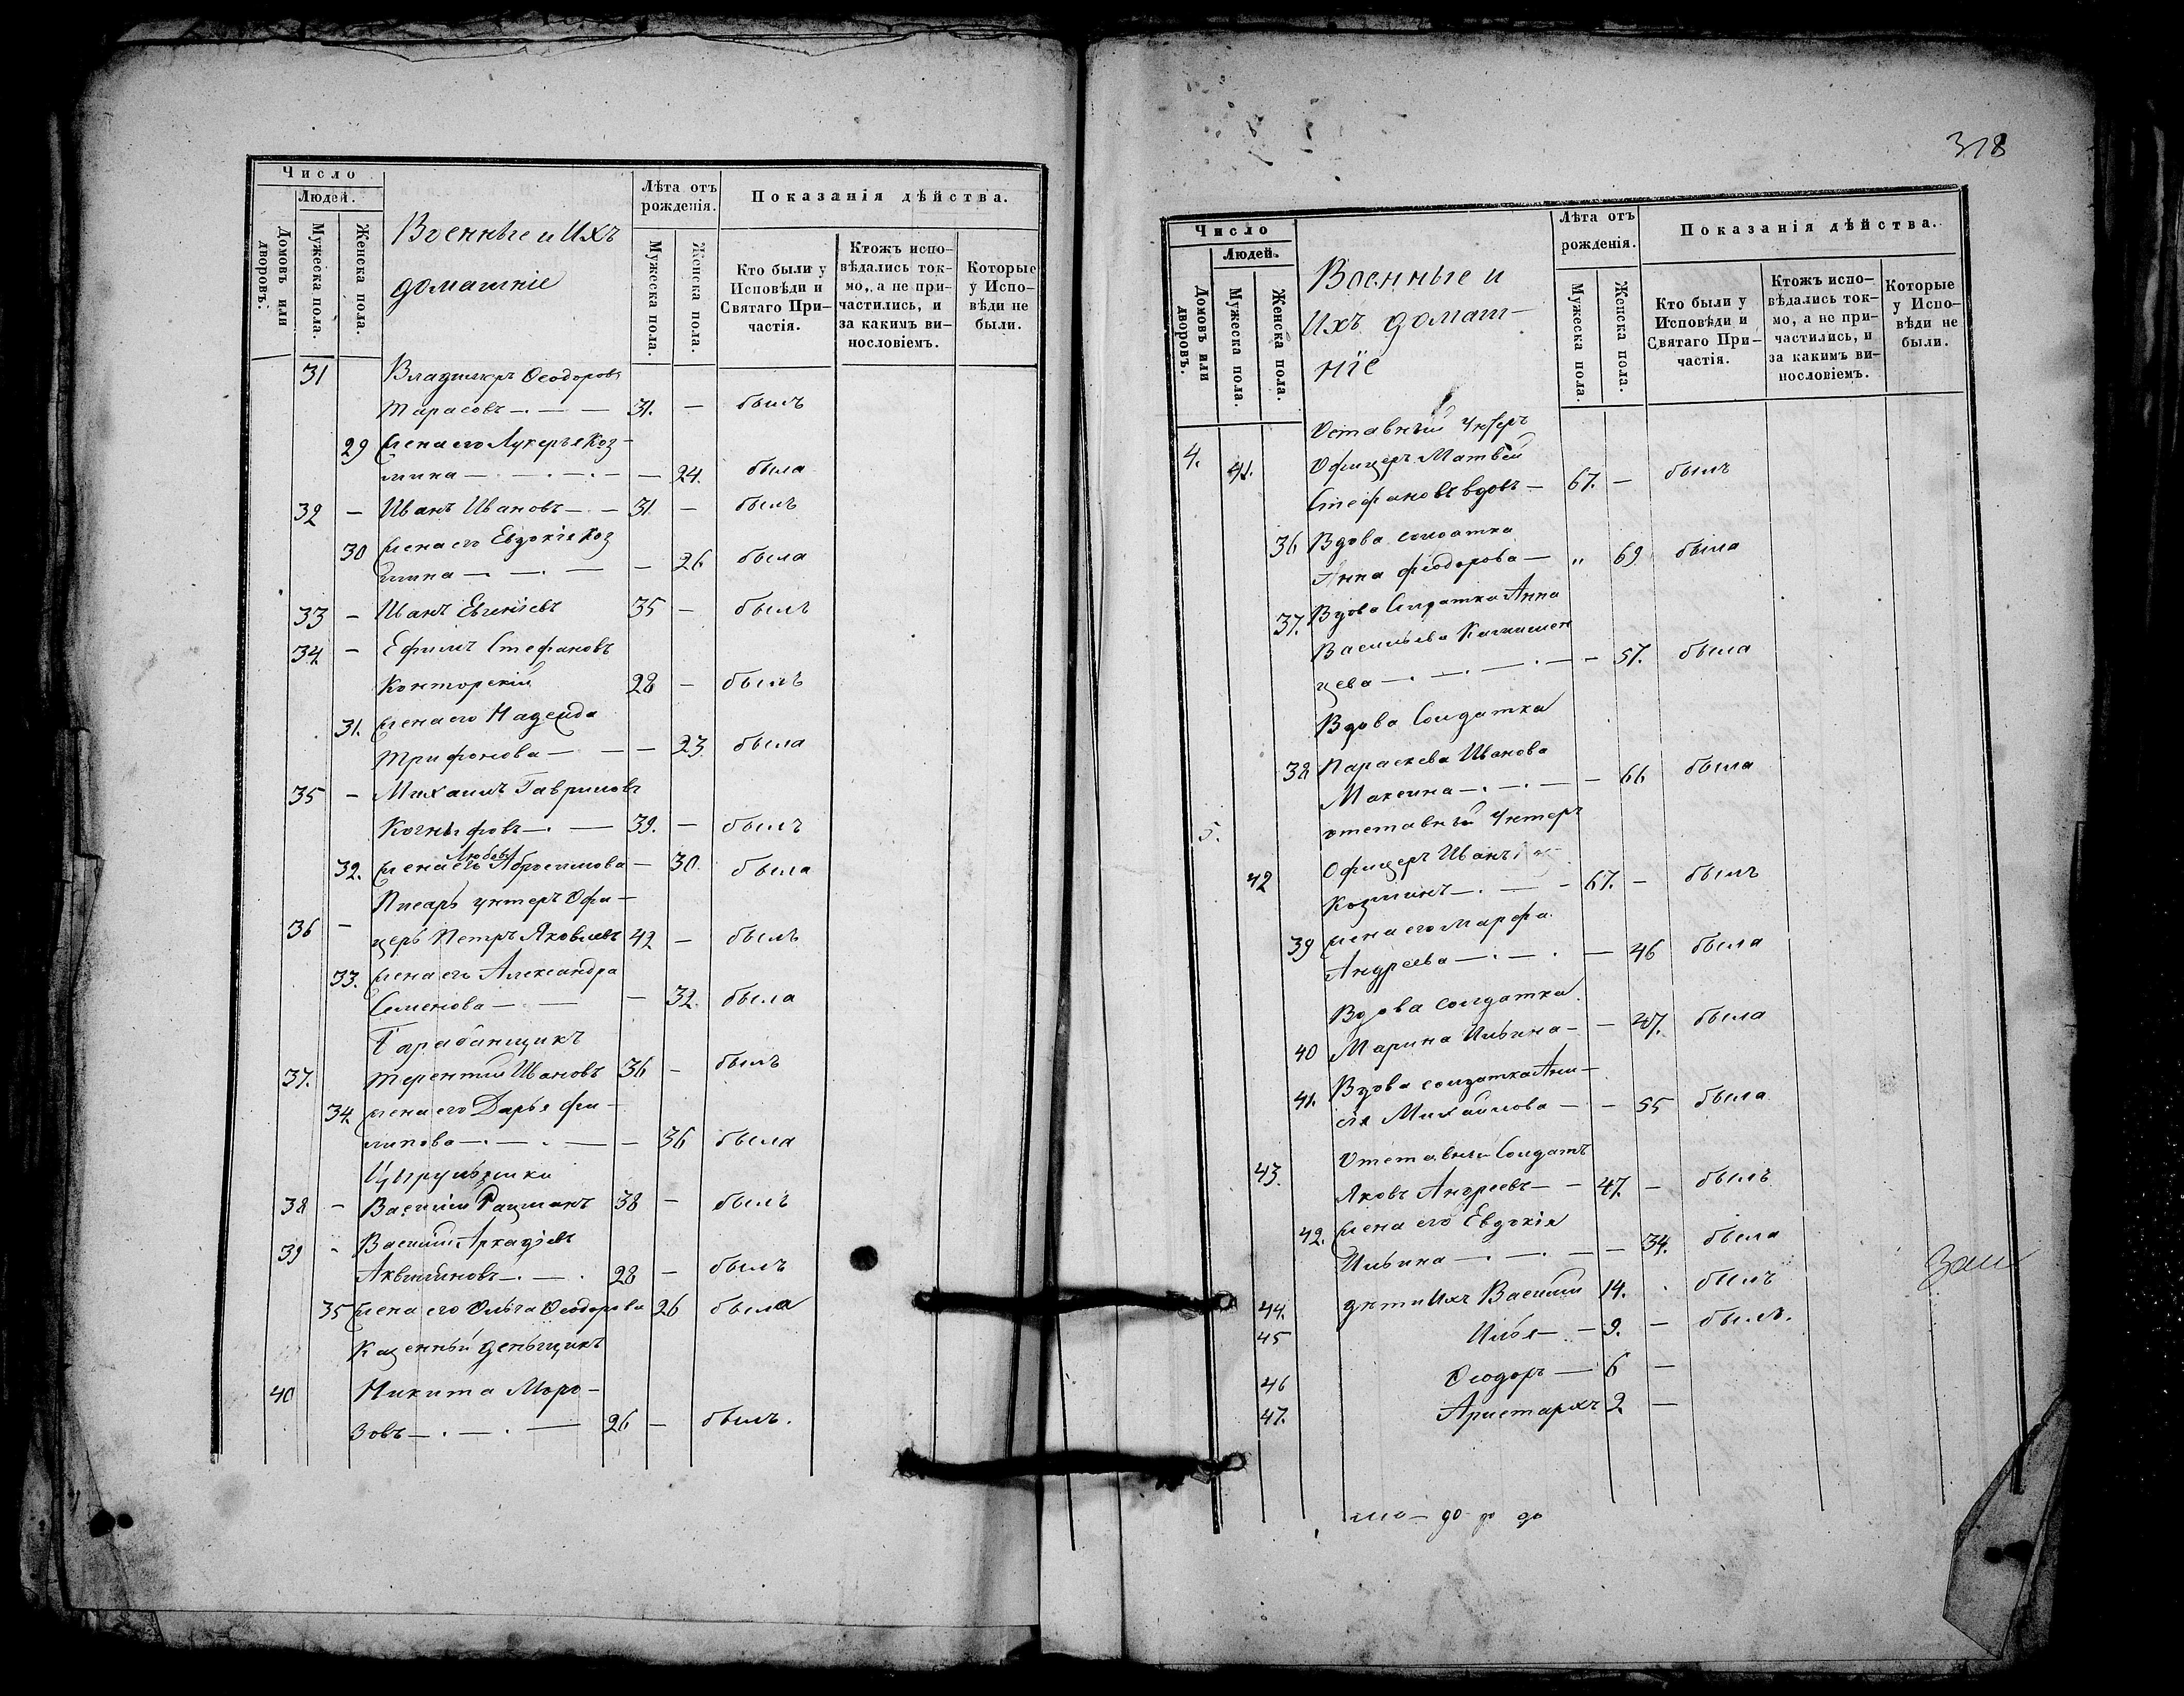 Число
Людей.
Домовъ или дворовъ.
Мужеска пола.
Женска пола.
Военные и Ихъ
домашніе
Лѣта отъ
рожденія.
Мужеска пола.
Женска пола.
Показанія дѣйства.
Кто были у
Исповѣди и
Святаго При-
частія.
Ктожъ испо-
вѣдались ток-
мо, а не при-
частились, и
за какимъ ви-
нословіемъ.
Которые
у Испо-
вѣди не
были.
31 Владимеръ Ѳеодоровъ
Тарасовъ — 31. — былъ
29 Жена его Лукерья Коз-
мина — — 24. была
32 — Иванъ Ивановъ — 31 — былъ
30 Жена его Евдокія Коз
мина — — 26 была
33 — Иванъ Евгеніевъ 35 — былъ
34 — Ефимъ Стефановъ
Конторскій 28 — былъ
31. Жена его Надежда
Трифонова — — 23. была
35 — Михаилъ Гавриловъ
39. — былъ
Любовь
32. Жена его Абросимова — 30. была
Писарь унтеръ Офи-
36 — церъ Петръ Яковлевъ 42 — былъ
33. Жена его Александра
Семенова — — 32. была
Барабанщикъ
37. Терентій Ивановъ 36 — былъ
34. Жена его Дарья Фи-
липова — — 36 была
Цырульники
38 — Василій 38 — былъ
39 - Василій Аркадіевъ
28 — былъ
35 Жена его Ольга Ѳеодорова 26 была
Казенный деньщикъ
40 Никита Моро-
зовъ — 26 — былъ.
318
Число
Людей.
Домовъ или дворовъ.
Мужеска пола.
Женска пола.
Военные и
Ихъ домаш-
ніе
Лѣта отъ
рожденія.
Мужеска пола.
Женска пола.
Показанія дѣйства.
Кто были у
Исповѣди и
Святаго При-
частія.
Ктожъ испо-
вѣдались ток-
мо, а не при-
частились, и
за какимъ ви-
нословіемъ.
Которые
у Испо-
вѣди не
были.
Оставный Унтеръ
4. 41. Офицеръ Матвѣй
Стефановъ вдовъ — 67. — былъ
36 Вдова солдатка
Анна Феодорова — „ 69 была
37. Вдова Солдатка Анна
Васильева
цева — — 57. была
Вдова Солдатка
38 Параскева Иванова
— 66 была
5. отставный Унтеръ
42 Офицеръ Иванъ
Козминъ — 67. — былъ
39 Жена его Марфа
Андреева — — 46 была
Вдова солдатка
40 Марина Ильина — — 47. была
41. Вдова солдатка Ани-
сія Михайлова — — 55 была
43. Отставный Солдатъ
Яковъ Андреевъ — 47. — былъ
42. Жена его Евдокія
Ильина — — 34. была
44. дѣти Ихъ Василій 14. былъ
45 Илья — 9. — былъ.
46 Ѳеодоръ — 6 —
47. Аристархъ 2. —